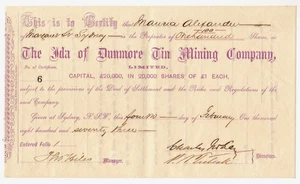 This is to Certify that Maurice Alexander
Margaret St Sydney is the Proprietor of One hundred Shares in
The Ida of Dunmore Tin Mining Company,
LIMITED.
No. of Certificate
CAPITAL, £20,000, IN 20,000 SHARES OF £1 EACH,
6
subject to the provisions of the Deed of Settlement and the Rules and Regulations of the
said Company.
Given at Sydney, N.S.W., this day of February One thousand
eight hundred and seventy three
Entered Folio 1
Charles
Manager.